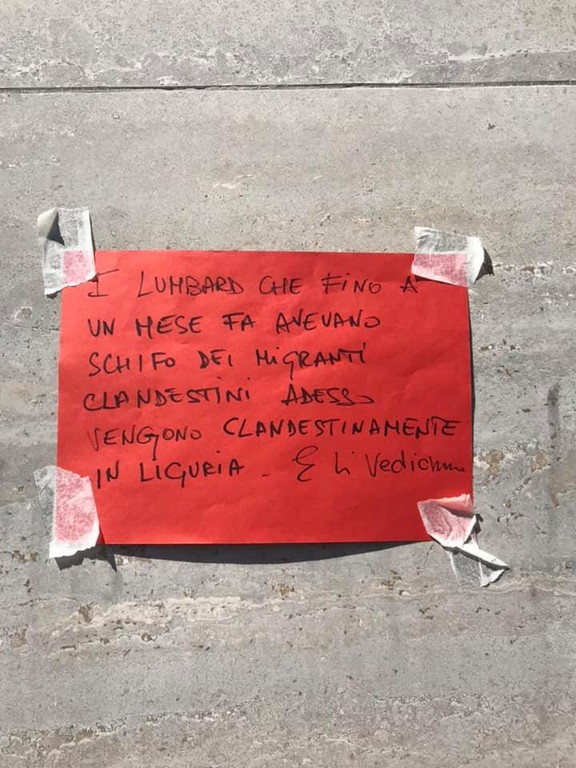 I LUMBARD CHE FINO A
UN MESE FA AVEVANO
SCHIFO DEI MIGRANTI
CLANDESTINI ADESSO
VENGONO CLANDESTINAMENTE
IN LIGURIA - E li vediamo